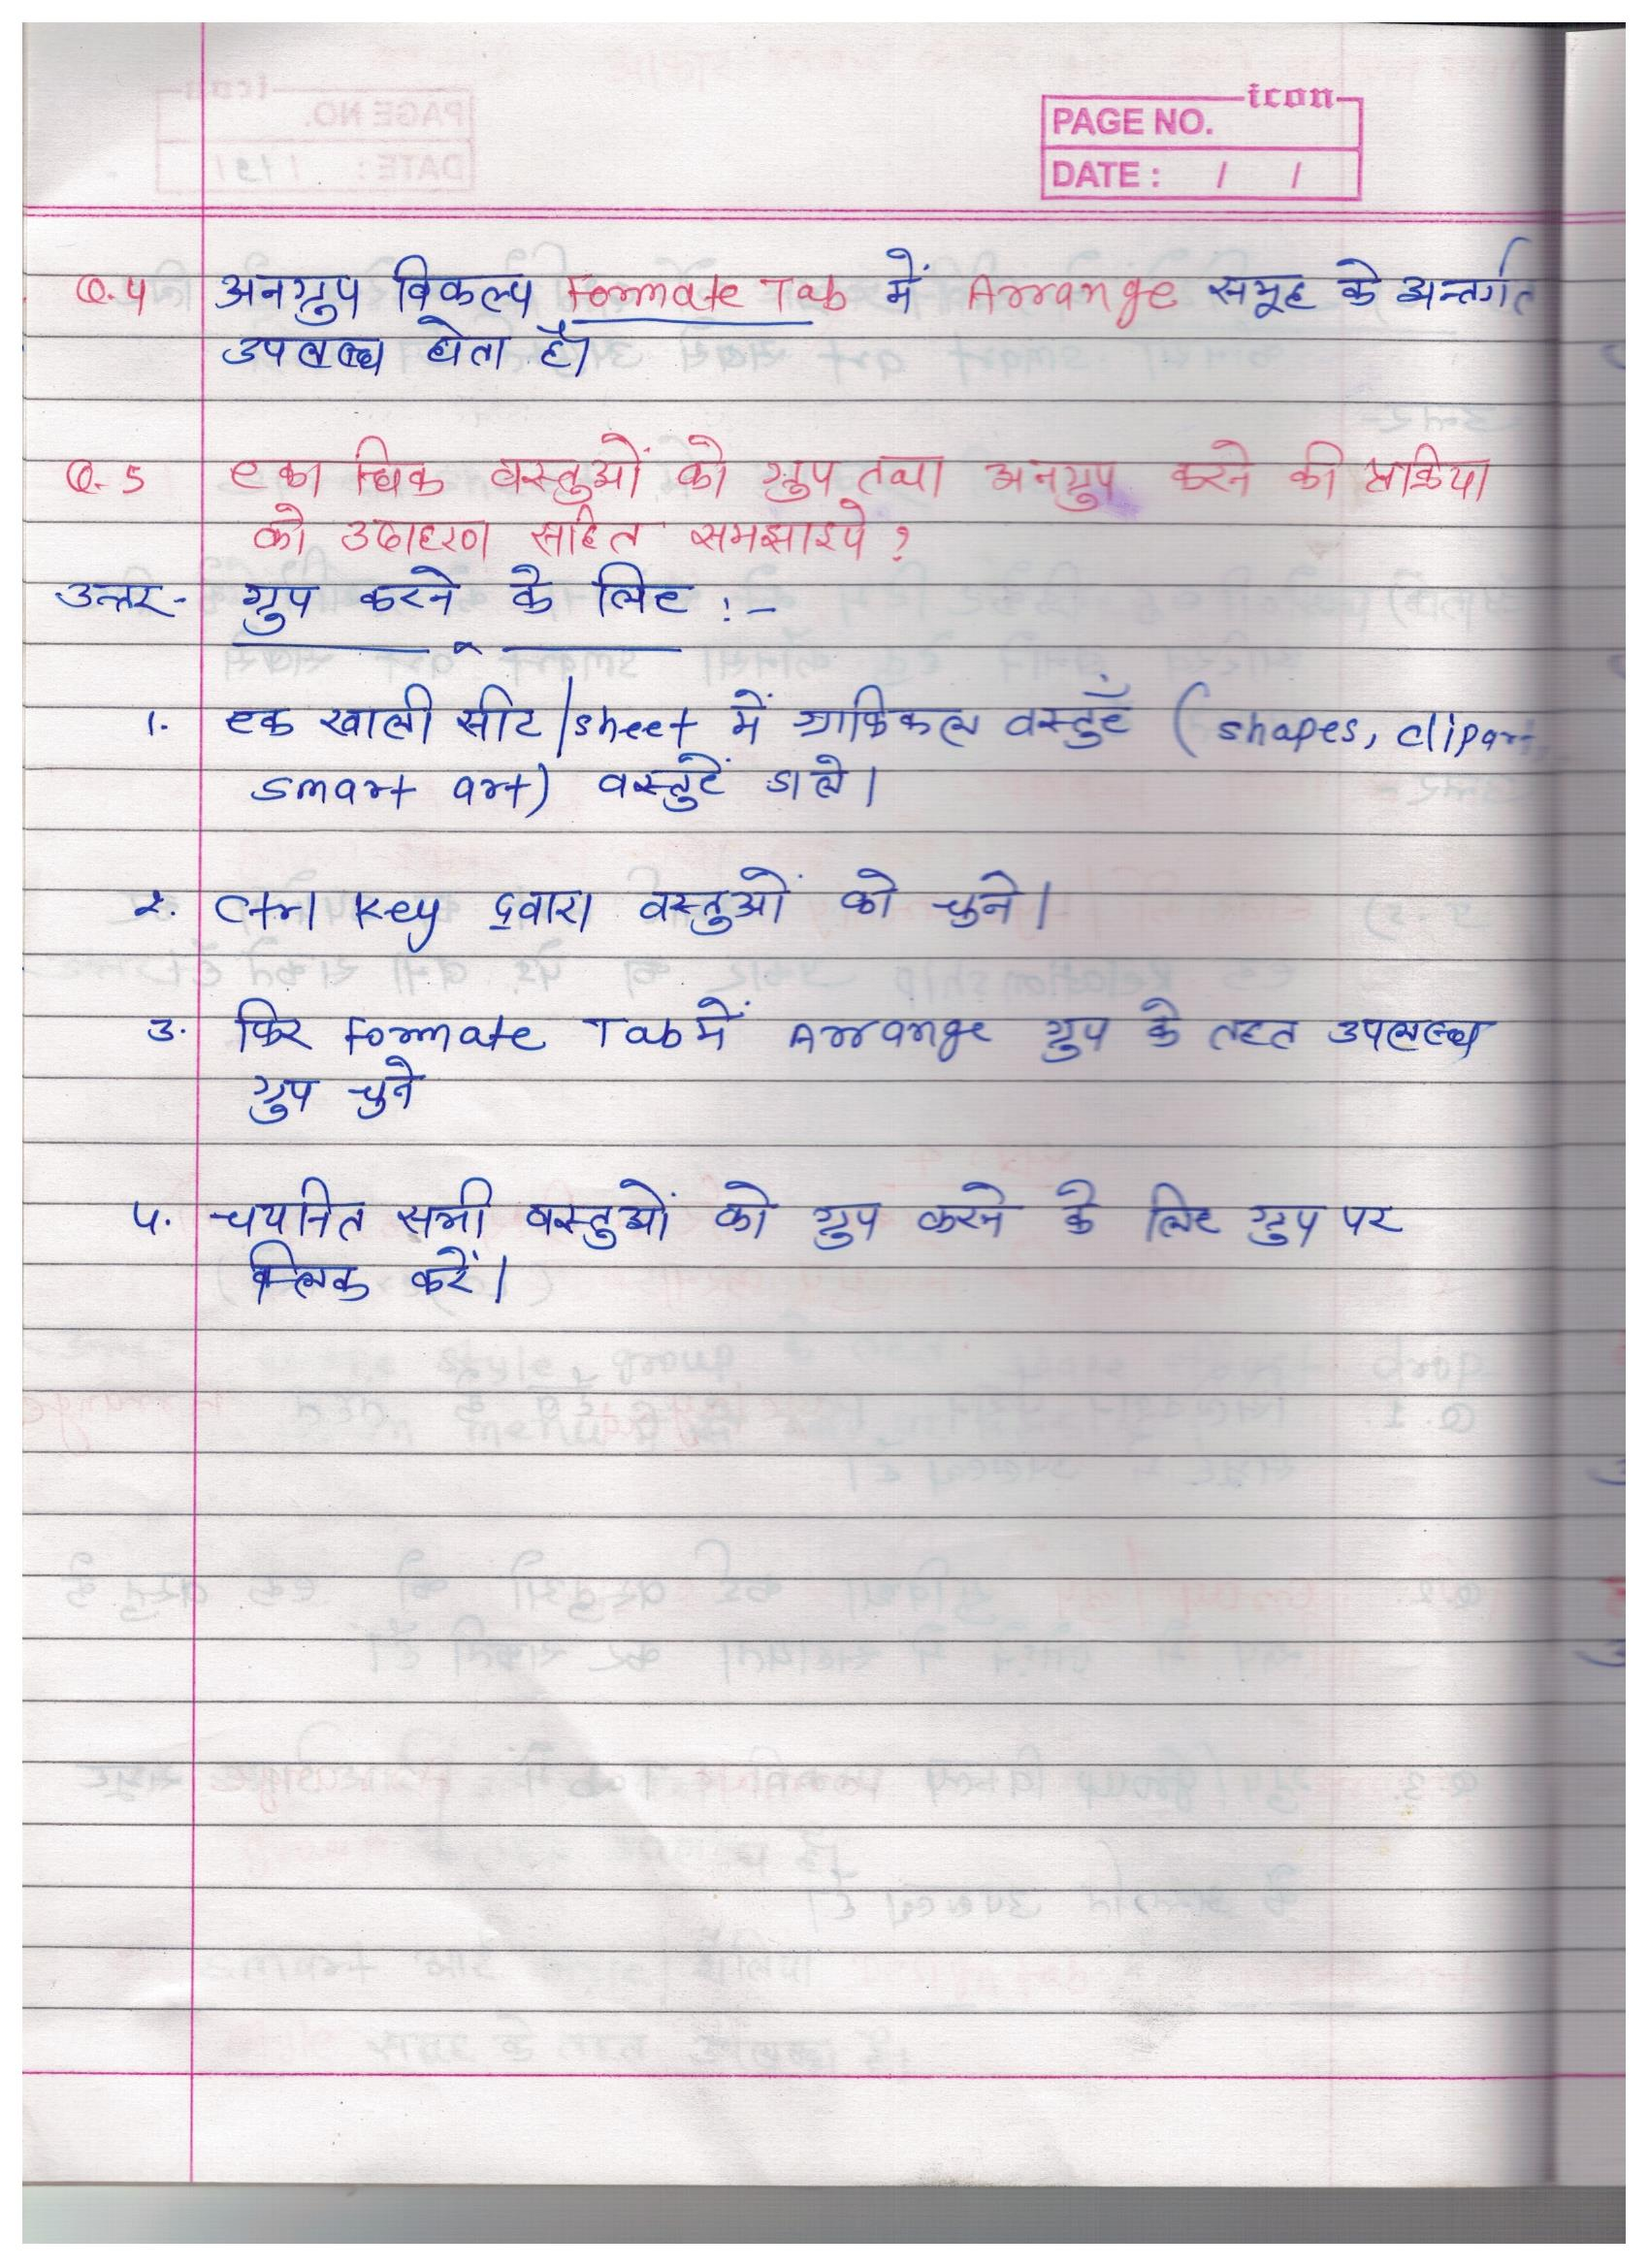 icon
PAGE NO.
DATE : / /
Q.4 अनग्रुप विकल्प Formate Tab में Arrange समूह के अन्तर्गत
उपलब्ध होता है।
Q.5 एकाधिक वस्तुओं को ग्रुप तथा अनग्रुप करने की प्रक्रिया
को उदाहरण सहित समझाइये ?
उत्तर- ग्रुप करने के लिए :-
1. एक खाली सीट/sheet में ग्राफिकल वस्तुएँ ( shapes, clipart,
smart art) वस्तुएें डाले।
2. Ctrl Key द्वारा वस्तुओं को चुने।
3. फिर Formate Tab में Arrange ग्रुप के तहत उपलब्ध
ग्रुप चुने
4. चयनित सभी वस्तुओं को ग्रुप करने के लिए ग्रुप पर
क्लिक करें।